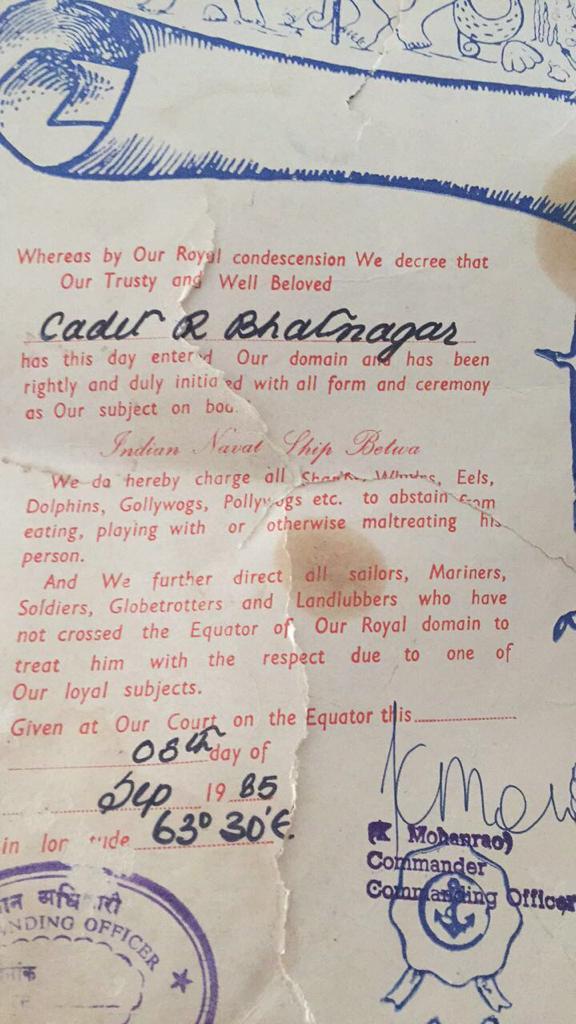 Whereas by Our Royal condescension We decree that
Our Trusty and Well Beloved
Cadet R Bhatnagar
has this day entered Our domain and has been
rightly and duly initia ed with all form and ceremony
as Our subject on boa
Indian Naval Ship Betwa
We do hereby charge all Sharks, Whales, Eels,
Dolphins, Gollywogs, Pollywogs etc. to abstain from
eating, playing with or otherwise maltreating his
person.
And We further direct all sailors, Mariners,
Soldiers, Globetrotters and Landlubbers who have
not crossed the Equator of Our Royal domain to
treat him with the respect due to one of
Our loyal subjects.
Given at Our Court on the Equator this
08th day of
Sep 19 85
in lon tude 63° 30'E.
(K Mohanrao)
Commander
Commanding Officer
NDING OFFICER